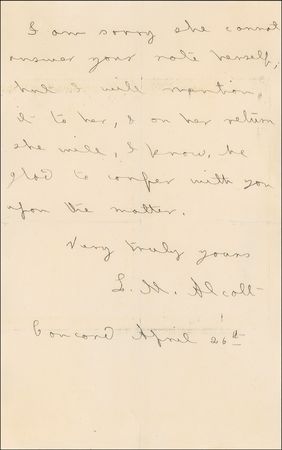 I am sorry she cannot
answer your note herself,
but I will mention
it to her, & on her return
she will, I know, be
glad to confer with you
upon the matter.
Very truly yours
L. M. Alcott
Concord April 26th